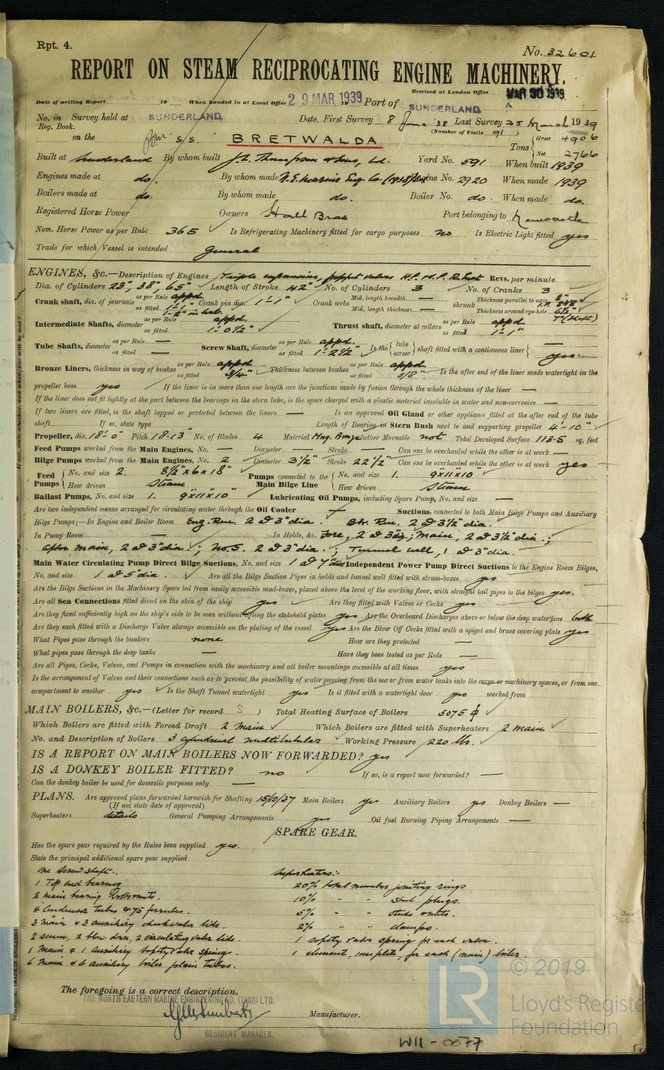 Rpt. 4.
No. 32601
REPORT ON STEAM RECIPROCATING ENGINE MACHINERY.
Received at London Office MAR 30 1939
Date of writing Report 19 When handed in at Local Office 29 MAR 1939 Port of SUNDERLAND
No. in Survey held at SUNDERLAND Date, First Survey 8 June 38 Last Survey 25 March 1939
Reg. Book. (Number of Visits 91)
on the S.S. BRETWALDA Tons Gross 4906 Net 2766
Built at Sunderland By whom built J.L. Thompson & Sons, Ld. Yard No. 591 When built 1939
Engines made at do. By whom made N.E. Marine Eng. Co. (1938) Ld. Engine No. 2920 When made 1939
Boilers made at do. By whom made do. Boiler No. do. When made do.
Registered Horse Power Owners Hall Bros Port belonging to Newcastle
Nom. Horse Power as per Rule 365 Is Refrigerating Machinery fitted for cargo purposes no Is Electric Light fitted yes
Trade for which Vessel is intended General
ENGINES, &c.—Description of Engines Triple expansion, poppet valves H.P. M.P. Reheat Revs. per minute
Dia. of Cylinders 23", 38", 65" Length of Stroke 42" No. of Cylinders 3 No. of Cranks 3
Crank shaft, dia. of journals as per Rule appd. as fitted 1'-1" Crank pin dia. 1'-1" Crank webs Mid. length breadth — Mid. length thickness — shrunk Thickness parallel to axis Thickness around eye-hole
Intermediate Shafts, diameter as per Rule appd. as fitted 1'-0½" Thrust shaft, diameter at collars as per Rule appd. as fitted 1'-1"
Tube Shafts, diameter as per Rule — as fitted — Screw Shaft, diameter as per Rule appd. as fitted 1'-2½" Is the tube screw shaft fitted with a continuous liner yes
Bronze Liners, thickness in way of bushes as per Rule appd. as fitted 3/4" Thickness between bushes as per Rule appd. as fitted 5/8" Is the after end of the liner made watertight in the
propeller boss yes If the liner is in more than one length are the junctions made by fusion through the whole thickness of the liner —
If the liner does not fit tightly at the part between the bearings in the stern tube, is the space charged with a plastic material insoluble in water and non-corrosive —
If two liners are fitted, is the shaft lapped or protected between the liners — Is an approved Oil Gland or other appliance fitted at the after end of the tube
shaft If so, state type Length of Bearing in Stern Bush next to and supporting propeller 4'-10"
Propeller, dia. 18'-0" Pitch 18'-13" No. of Blades 4 Material Mng. Bronze whether Moveable not Total Developed Surface 113.5 sq. feet
Feed Pumps worked from the Main Engines, No. — Diameter — Stroke — Can one be overhauled while the other is at work —
Bilge Pumps worked from the Main Engines, No. 2 Diameter 3½" Stroke 22½" Can one be overhauled while the other is at work yes
Feed Pumps No. and size 2. 8½"x6x18" How driven Steam Pumps connected to the Main Bilge Line No. and size 1. 9x11x10" How driven Steam
Ballast Pumps, No. and size 1. 9x11x10" Lubricating Oil Pumps, including Spare Pump, No. and size —
Are two independent means arranged for circulating water through the Oil Cooler Suctions, connected to both Main Bilge Pumps and Auxiliary
Bilge Pumps;—In Engine and Boiler Room Eng. Rm. 2 @ 3" dia. Blr. Rm. 2 @ 3½" dia.
In Pump Room — In Holds, &c. Fore, 2 @ 3" dia; Main, 2 @ 3½" dia.;
After main, 2 @ 3" dia.; No.5. 2 @ 3" dia.; Tunnel well, 1 @ 3" dia.
Main Water Circulating Pump Direct Bilge Suctions, No. and size 1 @ 7" dia Independent Power Pump Direct Suctions to the Engine Room Bilges,
No. and size 1 @ 5" dia. Are all the Bilge Suction Pipes in holds and tunnel well fitted with strum-boxes yes
Are the Bilge Suctions in the Machinery Space led from easily accessible mud-boxes, placed above the level of the working floor, with straight tail pipes to the bilges yes.
Are all Sea Connections fitted direct on the skin of the ship yes Are they fitted with Valves or Cocks yes
Are they fixed sufficiently high on the ship's side to be seen without lifting the stokehold plates yes Are the Overboard Discharges above or below the deep water line both
Are they each fitted with a Discharge Valve always accessible on the plating of the vessel yes Are the Blow Off Cocks fitted with a spigot and brass covering plate yes
What Pipes pass through the bunkers none How are they protected —
What pipes pass through the deep tanks — Have they been tested as per Rule —
Are all Pipes, Cocks, Valves, and Pumps in connection with the machinery and all boiler mountings accessible at all times yes
Is the arrangement of Valves and their connections such as to prevent the possibility of water passing from the sea or from water tanks into the cargo or machinery spaces, or from one
compartment to another yes Is the Shaft Tunnel watertight yes Is it fitted with a watertight door yes worked from
MAIN BOILERS, &c.—(Letter for record S) Total Heating Surface of Boilers 5075
Which Boilers are fitted with Forced Draft 2 main Which Boilers are fitted with Superheaters 2 main
No. and Description of Boilers 3 cylindrical multitubular Working Pressure 220 lbs.
IS A REPORT ON MAIN BOILERS NOW FORWARDED? yes
IS A DONKEY BOILER FITTED? no If so, is a report now forwarded? —
Can the donkey boiler be used for domestic purposes only —
PLANS. Are approved plans forwarded herewith for Shafting 15/10/37 Main Boilers yes Auxiliary Boilers yes Donkey Boilers —
(If not state date of approval)
Superheaters details General Pumping Arrangements yes Oil fuel Burning Piping Arrangements —
SPARE GEAR.
Has the spare gear required by the Rules been supplied yes.
State the principal additional spare gear supplied
One screw shaft. Superheaters:-
1 Top end bearing 20% total number jointing rings
2 main bearing bolts & nuts. 10% " " stub plugs.
4 condenser tubes & 75 ferrules. 5% " " studs & nuts.
3 main & 3 auxiliary check valve lids. 2% " " clamps.
2 scum, 2 blow down, 2 circulating valve lids. 1 safety valve spring for each valve.
1 Main & 1 Auxiliary safety valve springs. 1 element, complete, for each (main) boiler.
6 Main & 6 auxiliary boiler plain tubes.
The foregoing is a correct description.
THE NORTH EASTERN MARINE ENGINEERING CO. (1938) LTD.
Manufacturer.
RESIDENT MANAGER.
W11-0077
LR © 2019
Lloyd's Register
Foundation